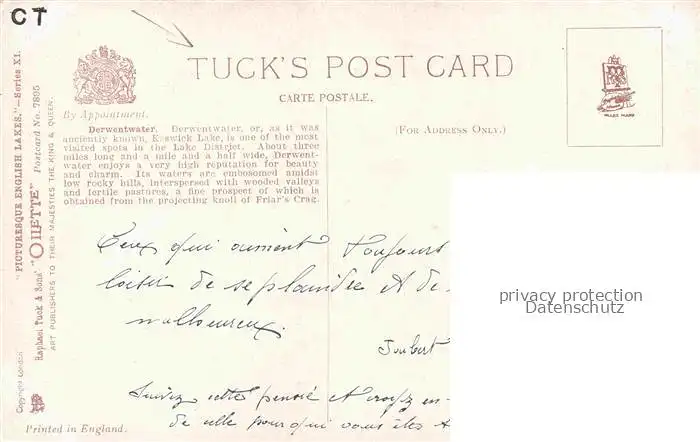 CT
TUCK'S POST CARD
CARTE POSTALE.
By Appointment.
(FOR ADDRESS ONLY.)
"PICTURESQUE ENGLISH LAKES."—Series XI.
Raphael Tuck & Sons' "OILETTE" Postcard No. 7895
ART PUBLISHERS TO THEIR MAJESTIES THE KING & QUEEN.
Copyright London
Derwentwater. Derwentwater, or, as it was
anciently known, Keswick Lake, is one of the most
visited spots in the Lake District. About three
miles long and a mile and a half wide, Derwent-
water enjoys a very high reputation for beauty
and charm. Its waters are embosomed amidst
low rocky hills, interspersed with wooded valleys
and fertile pastures, a fine prospect of which is
obtained from the projecting knoll of Friar's Crag.
Ceux qui aiment toujours
loisir de se plaindre et de
malheureux.
Joubert
Suivez cette pensée et croyez en
de celle pour qui vous êtes
privacy protection
Datenschutz
TRADE MARK
Printed in England.